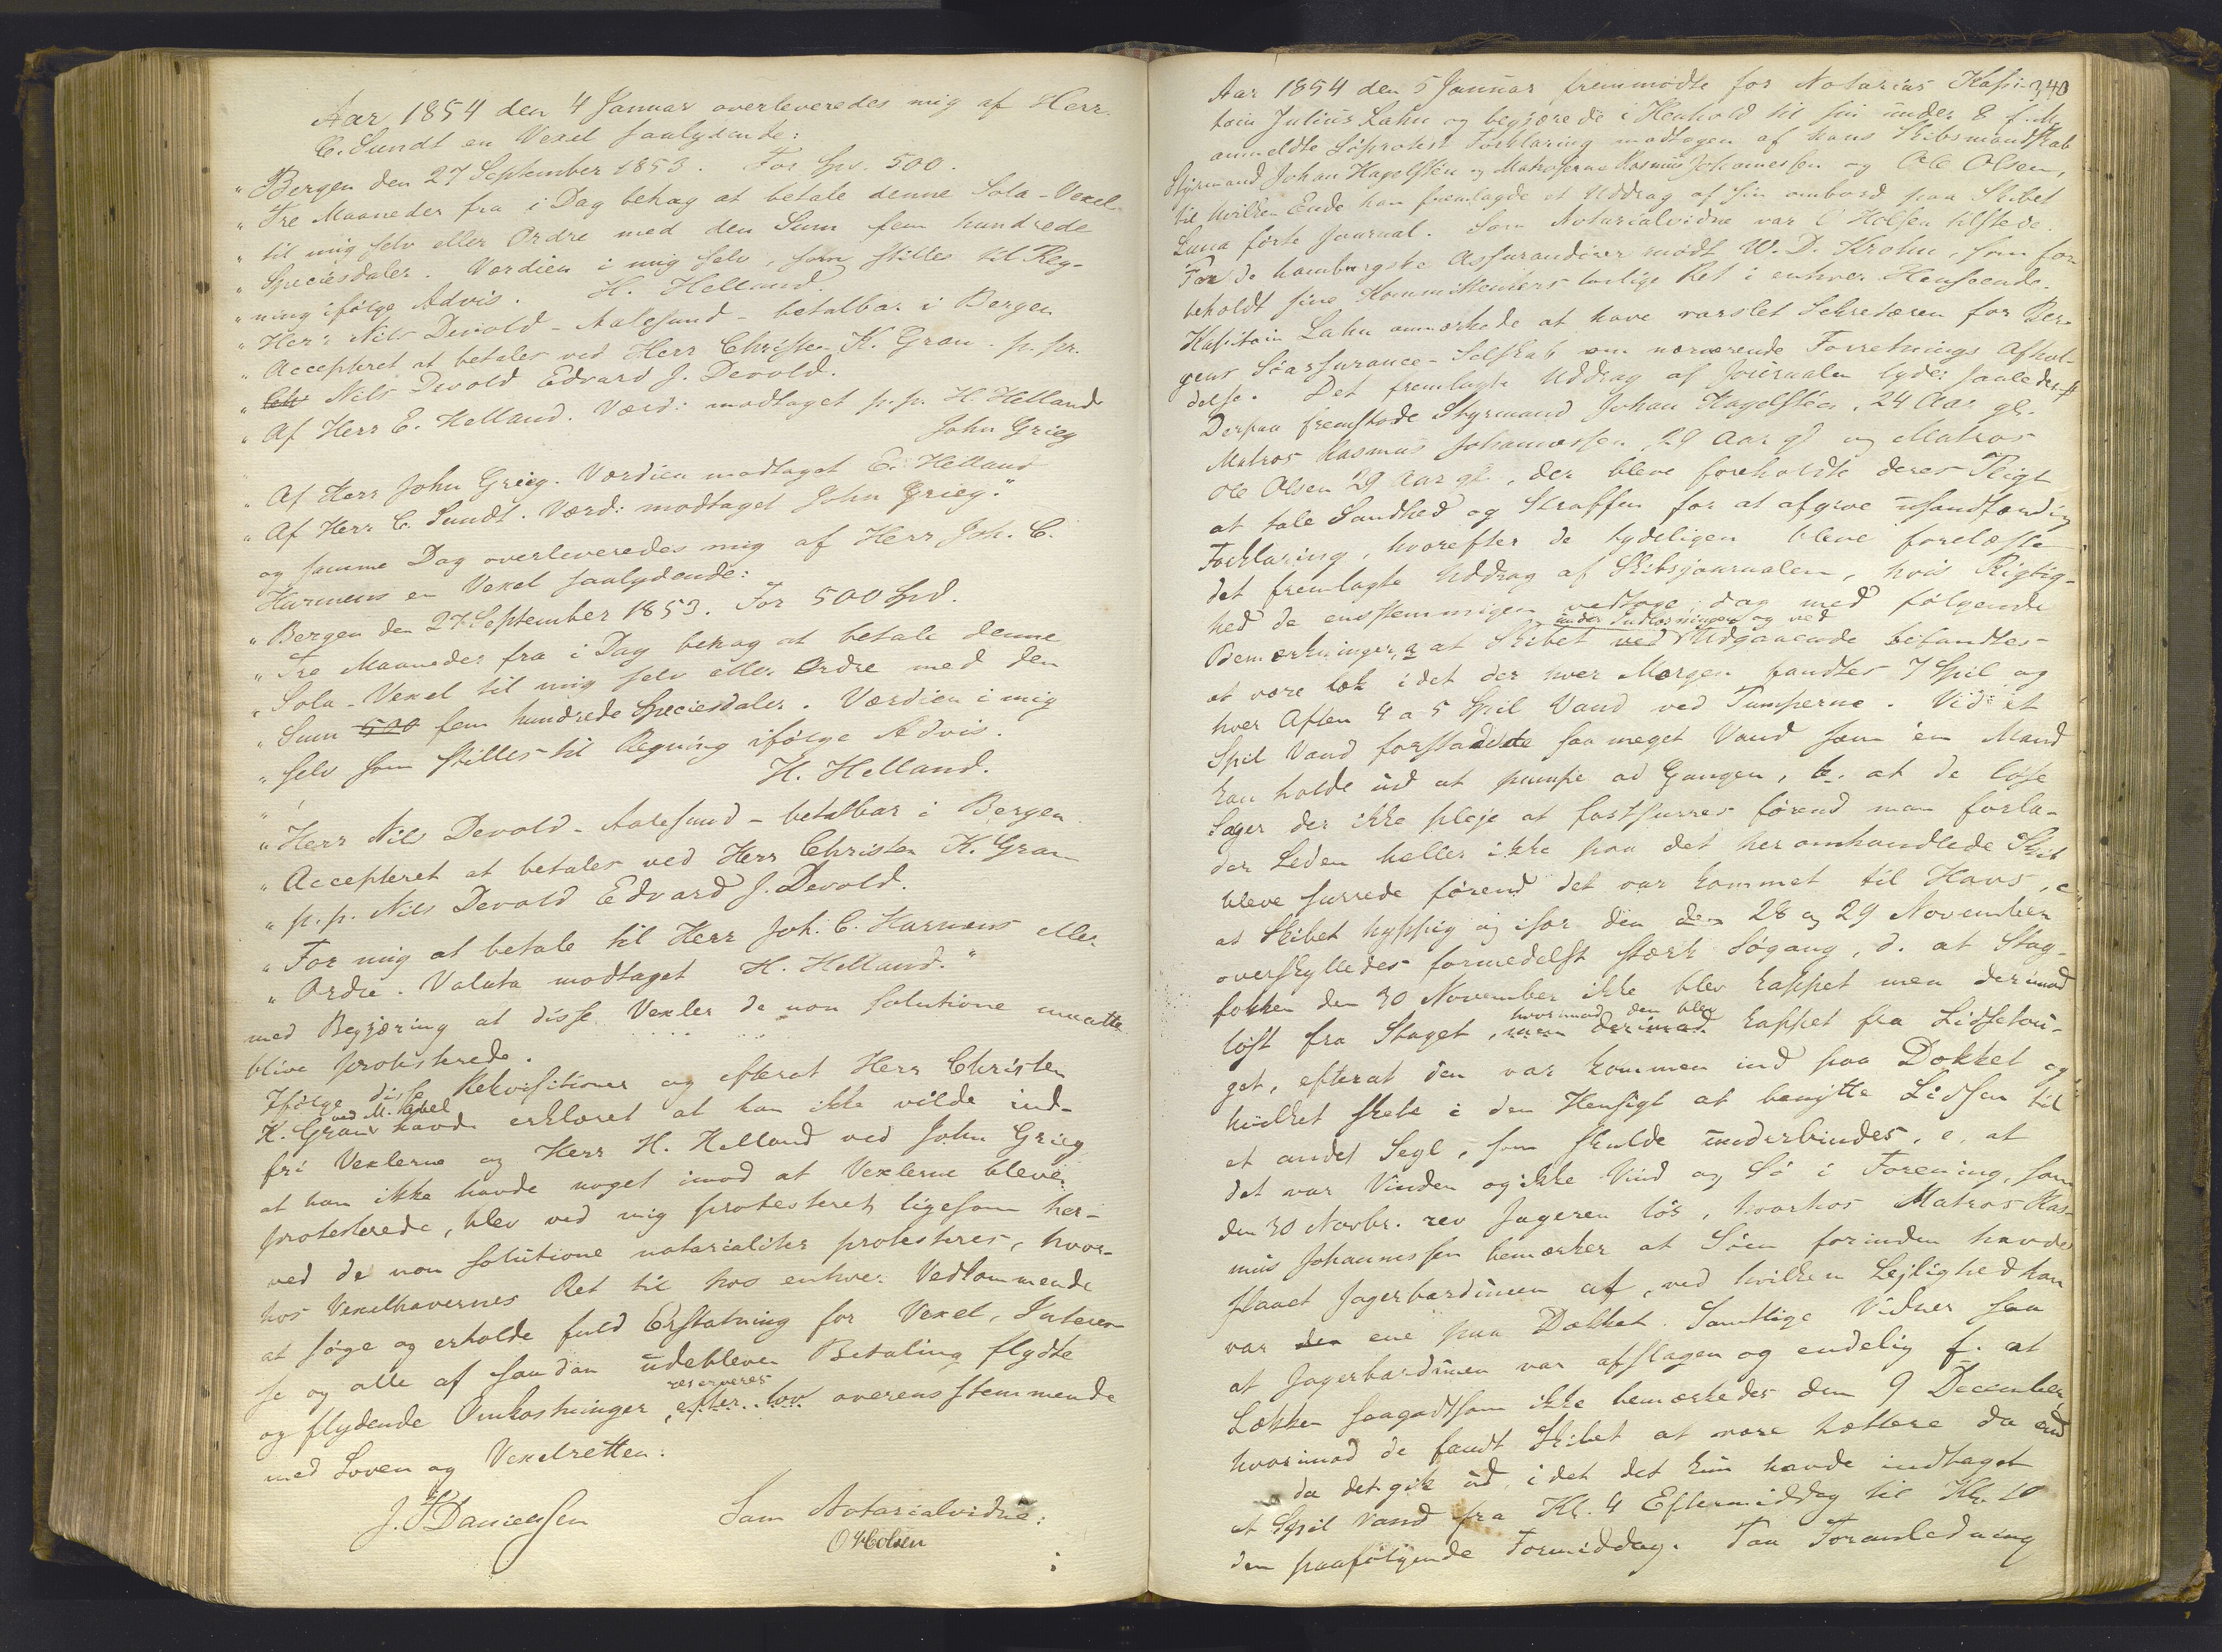 Aar 1854 den 4 Januar overleveredes mig af Herr
C. Sundt en Vexel saalydende:
"Bergen den 27 September 1853. For Spd. 500.
"Tre Maaneder fra i Dag behag at betale denne Sola-Vexel
"til mig selv eller Ordre med den Sum fem hundrede
"Speciesdaler. Værdien i mig selv, som stilles til Reg-
"ning ifølge Advis. H. Helland.
"Herr Nils Devold - Aalesund - betalbar i Bergen
"Accepteret at betales ved Herr Christen K. Gran. p. pr.
" Nils Devold Edvard J. Devold.
"Af Herr E. Helland. Værd: modtaget p. p. H. Helland
John Grieg
"Af Herr John Grieg. Værdien modtaget E. Helland
"Af Herr C. Sundt. Værd: modtaget John Grieg."
og samme Dag overleveredes mig af Herr Joh. C.
Harmens en Vexel saalydende:
"Bergen den 27 September 1853. For 500 Spd.
"Tre Maaneder fra i Dag behag at betale denne
"Sola-Vexel til mig selv eller Ordre med den
"Sum 500 fem hundrede Speciesdaler. Værdien i mig
"selv som stilles til Regning ifølge Advis.
" H. Helland.
"Herr Nils Devold - Aalesund - betalbar i Bergen
"Accepteret at betales ved Herr Christen K. Gran
"p. p. Nils Devold Edvard J. Devold.
"For mig at betale til Herr Joh. C. Harmens eller
"Ordre. Valuta modtaget H. Helland."
med Begjæring at disse Vexler de non solutione maatte
blive protesterede.
Ifølge disse Rekvisitioner og efterat Herr Christen
K. Gran ved M. havde erklæret at han ikke vilde ind-
fri Vexlerne og Herr H. Helland ved John Grieg
at han ikke havde noget imod at Vexlerne bleve
protesterede, blev ved mig protesteret ligesom her-
ved de non solutione notarialiter protesteres, hvor-
hos Vexelhavernes Ret til hos enhver Vedkommende
at søge og erholde fuld Erstatning for Vexel, Interes-
se og alle af saadan udebleven Betaling flydte
og flydende Omkostninger reserveres efter Lov overensstemmende
med Loven og Vexelretten.
J. S. Danielsen Som Notarialvidne:
O Holsen
340
Aar 1854 den 5 Januar fremmødte for Notarius Kapi-
tain Julius Lahn og begjærede i Henhold til sin under 8 f. M.
anmeldte Søprotest Forklaring modtagen af hans Skibsmandskab
Styrmand Johan Hagelsteen og Matroserne Rasmus Johannessen og Ole Olsen,
til hvilken Ende han fremlagde et Uddrag af sin ombord paa Skibet
Luna førte Journal. Som Notarialvidne var O Holsen tilstede.
For de hamborgske Assurandører mødt W. D. Krohn, som for-
beholdt sine Kommittenters lovlige Ret i enhver Henseende.
Kapitain Lahn anmærkede at have varslet Sekretæren for Ber-
gens Søassurance-Selskab om nærværende Forretnings Afhol-
delse. Det fremlagte Uddrag af Journalen lyder saaledes
Derpaa fremstode Styrmand Johan Hagelsteen, 24 Aar gl.
Matros Rasmus Johannessen 29 Aar gl og Matros
Ole Olsen 29 Aar gl, der bleve foreholdte deres Pligt
at tale Sandhed og Straffen for at afgive usandfærdig
Forklaring, hvorefter de tydeligen bleve forelæste
det fremlagte Uddrag af Skibsjournalen, hvis Rigtig-
hed de enstemmigen vedtoge; dog med følgende
Bemærkninger, a at Skibet ved under Indlosningen og ved Udgaaende befandtes
at være læk idet der hver Morgen fandtes 7 Spil og
hver Aften 4 a 5 Spil Vand ved Pumperne. Ved et
Spil Vand forstaaes saa meget Vand som een Mand
kan holde ud at pumpe ad Gangen, b. at de løse
Sager der ikke pleje at fastsurres førend man forla-
der Leden heller ikke paa det heromhandlede Skib
bleve surrede førend det var kommet til Havs, c.
at Skibet hyppig og især den den 28 og 29 November
overskylledes formedelst stærk Søgang, d. at Stag-
fokken den 30 November ikke blev kappet men derimod
løst fra Staget, men derimod hvorimod den blev kappet fra Lidsetou-
get, efterat den var kommen ind paa Dækket og
hvilket skete i den Hensigt at benytte Lidsen til
et andet Segl, som skulde underbindes, e. at
det var Vinden og ikke Vind og Sø i Forening, som
den 30 Novbr. rev Jageren løs, hvorhos Matros Ras-
mus Johannessen bemærker at Søen forinden havde
slaaet Jagerbardunen af, ved hvilken Lejlighed han
var den ene paa Dækket. Samtlige Vidner saa
at Jagerbardunen var afslagen og endelig f. at
Lækken saagodtsom ikke bemærkedes den 9 December,
hvorimod de fandt Skibet at være tættere da end
da det gik ud, idet det kun havde indtaget
et Spil Vand fra Kl. 4 Eftermiddag til Kl. 10
den paafølgende Formiddag. Paa Foranledning